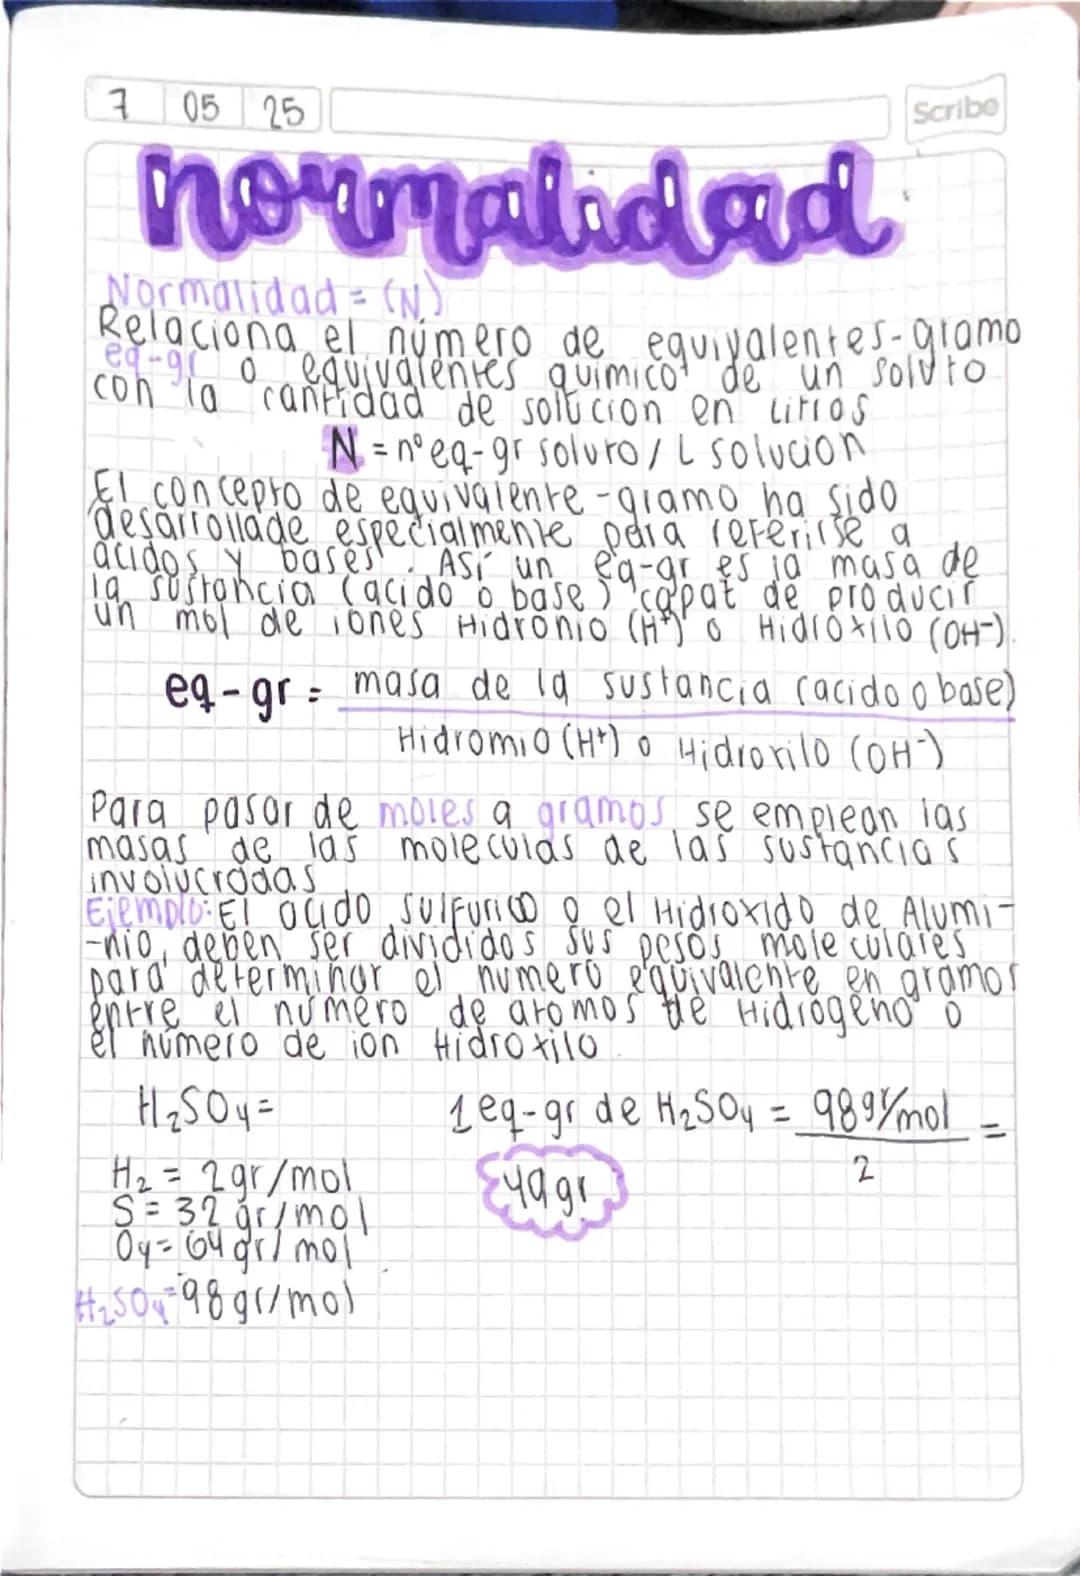 7 05 25
Scribe
normalidad
Normalidad = (N)
Relaciona el número de equivalentes-gramo
eq-gr o equivalentes quimico de un soluto
con la cantidad de solucion en litros
N = nº eq-gr soluto / L solucion
El concepto de equivalente-gramo ha sido
desarrollade especialmente para referirse a
acidos y bases. Así un eq-gr es la masa de
la sustancia (acido o base) capat de producir
un mol de iones Hidronio (H⁺) o Hidroxilo (OH⁻).
eq-gr = masa de la sustancia (acido o base)
Hidromio (H⁺) o Hidroxilo (OH⁻)
Para pasar de moles a gramos se emplean las
masas de las moleculas de las sustancias
involucradas
Ejemplo: El acido sulfurico o el Hidroxido de Alumi-
-nio, deben ser divididos sus pesos moleculares
para determinar el numero equivalente en gramos
entre el número de atomos de Hidrogeno o
el número de ion Hidroxilo.
H₂SO₄= 1 eq-gr de H₂SO₄ = 98gr/mol =
2
H₂ = 2gr/mol 49gr
S = 32 gr/mol
O₄= 64 gr/mol
H₂SO₄=98 gr/mol